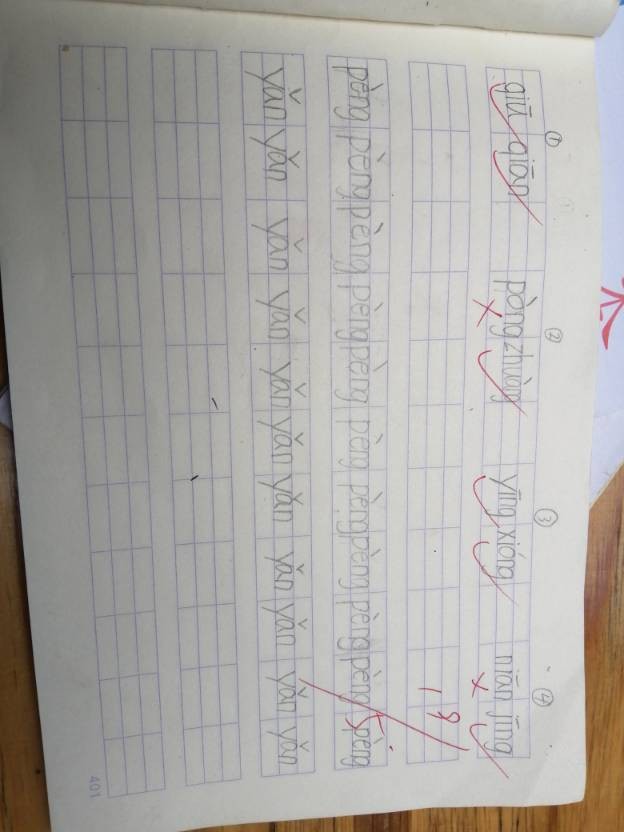 ① ② ③ ④
qiū qiān pòng zhuàng yīng xióng niān jīng
19
pèng pèng pèng pèng pèng pèng pèng pèng pèng pèng pèng
yǎn yǎn yǎn yǎn yǎn yǎn yǎn yǎn yǎn yǎn yǎn
401